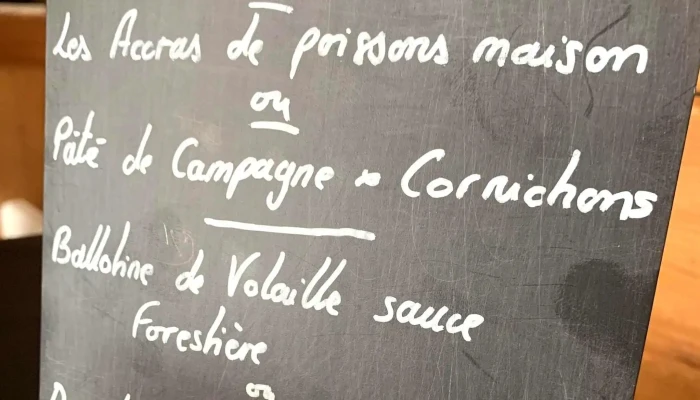 Les Accras de poissons maison
ou
Pâté de Campagne & Cornichons
Ballotine de Volaille sauce
Forestière
ou